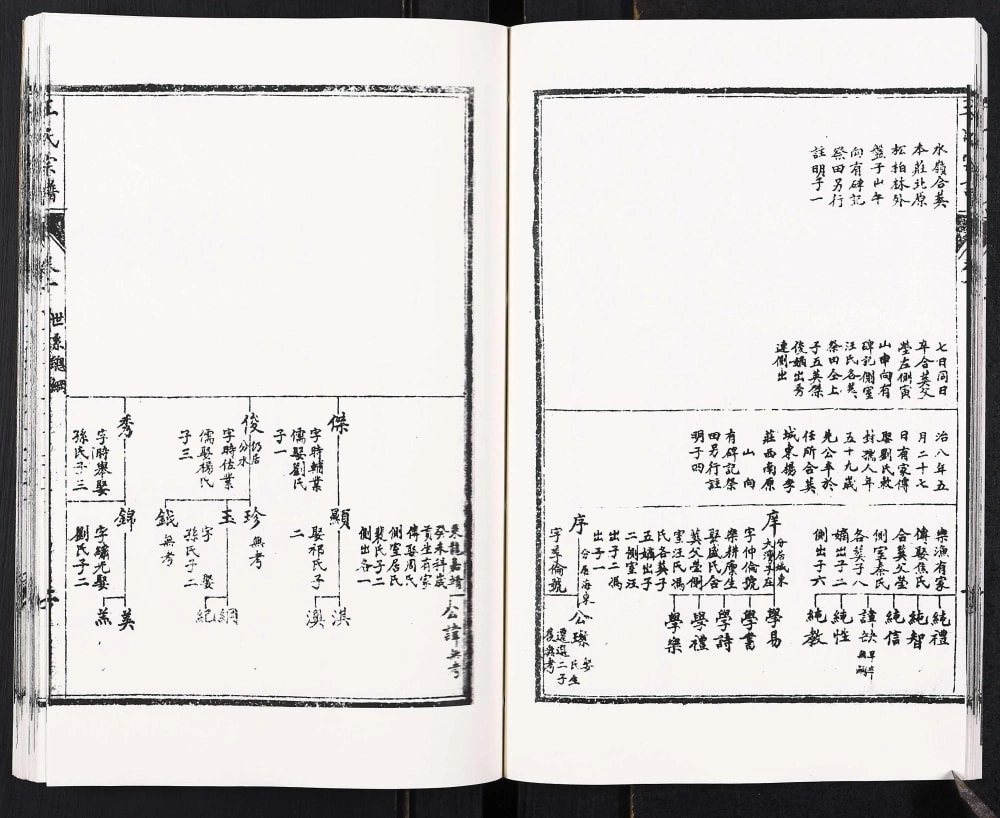 水嶺合葬
本莊北原
松柏林外
盤子山午
向有碑記
祭田另行
註明子一
七日同日
卒合葬父
塋左側寅
山申向有
碑記側室
汪氏各葬
祭田仝上
子五英傑
俊嫡出秀
達側出
治八年五
月二十七
日有家傳
娶劉氏敕
封孺人年
五十九歲
先公卒於
任所合葬
城東楊孝
莊西南原
山向
有碑記祭
田另行註
明子四
樂漁有家
傳娶焦氏
合葬父塋
側室秦氏
各葬子八
嫡出子二
側出子六
純禮
純智
純信
諱缺
純性
純教
庠
分居城東
大灣子庄
字仲倫號
樂耕原生
娶盛氏合
葬父塋側
室汪氏馮
氏各葬子
五嫡出子
二側室汪
出子二馮
出子一
學易
學書
學詩
學禮
學樂
序
分居海東
字季倫號
公璨
二子
後無考
王氏宗譜
卷一
世系總綱
東龍嘉靖
癸未科歲
貢生有家
傳娶周氏
側室居氏
裴氏子二
側出各一
公諱無考
傑
字時輔業
儒娶劉氏
子一
顯
娶祁氏子
二
淇
澳
俊
仍居
分水
字時佐業
儒娶楊氏
子三
珍
無考
玉
字 娶
孫氏子二
綱
紀
錢
無考
秀
字時舉娶
孫氏子三
錦
字繡光娶
劉氏子二
英
蒸